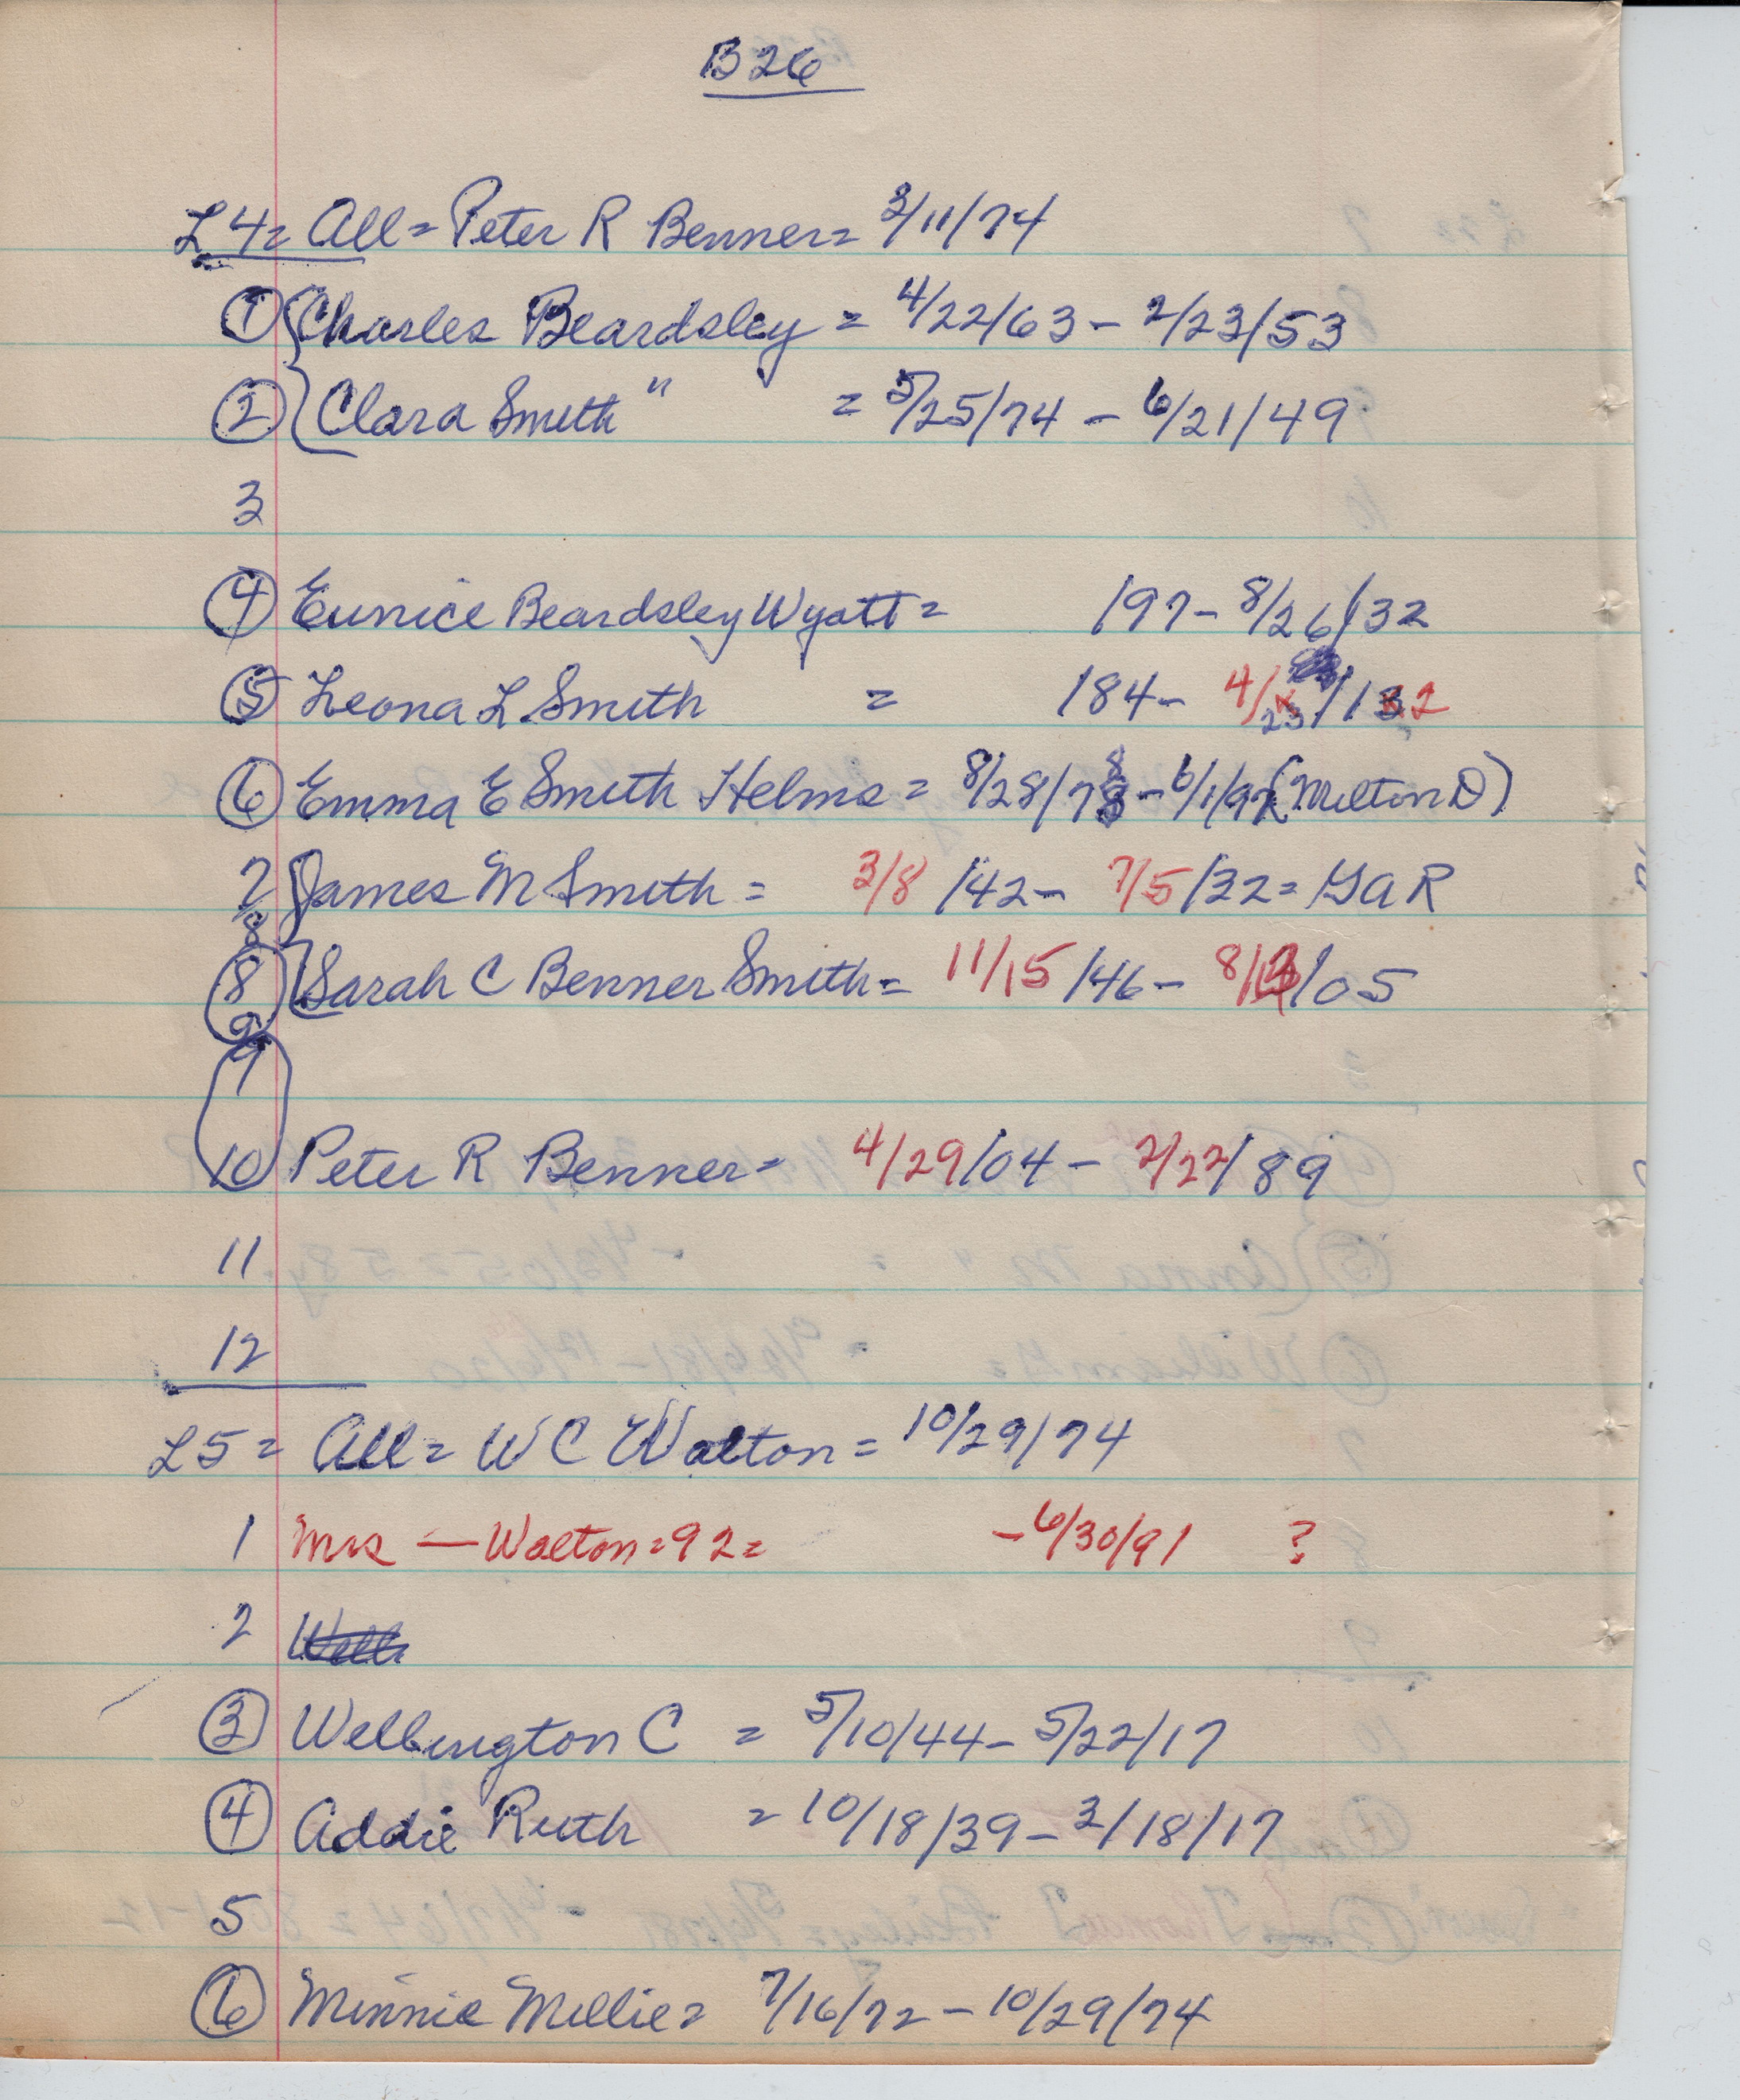 B26
L4= All= Peter R Benner= 3/11/74
1 Charles Beardsley = 4/22/63 - 2/23/53
2 Clara Smith " = 5/25/74 - 6/21/49
3
4 Eunice Beardsley Wyatt = 197- 8/26/32
5 Leona L Smith = 184- 4/23/132
6 Emma E Smith Helms = 8/28/78 - 6/1/97 (Milton D)
7 James M Smith = 3/8/42- 7/5/32= GAR
8
8 Sarah C Benner Smith= 11/15/46- 8/ /05
9
9
10 Peter R Benner= 4/29/04 - 2/22/89
11
12
L5= All= W C Walton = 10/29/74
1 Mrs — Walton = 92= - 6/30/91 ?
2
3 Wellington C = 5/10/44- 5/22/17
4 Addie Ruth = 10/18/39- 3/18/17
5
6 Minnie Millie= 7/16/72 - 10/29/74